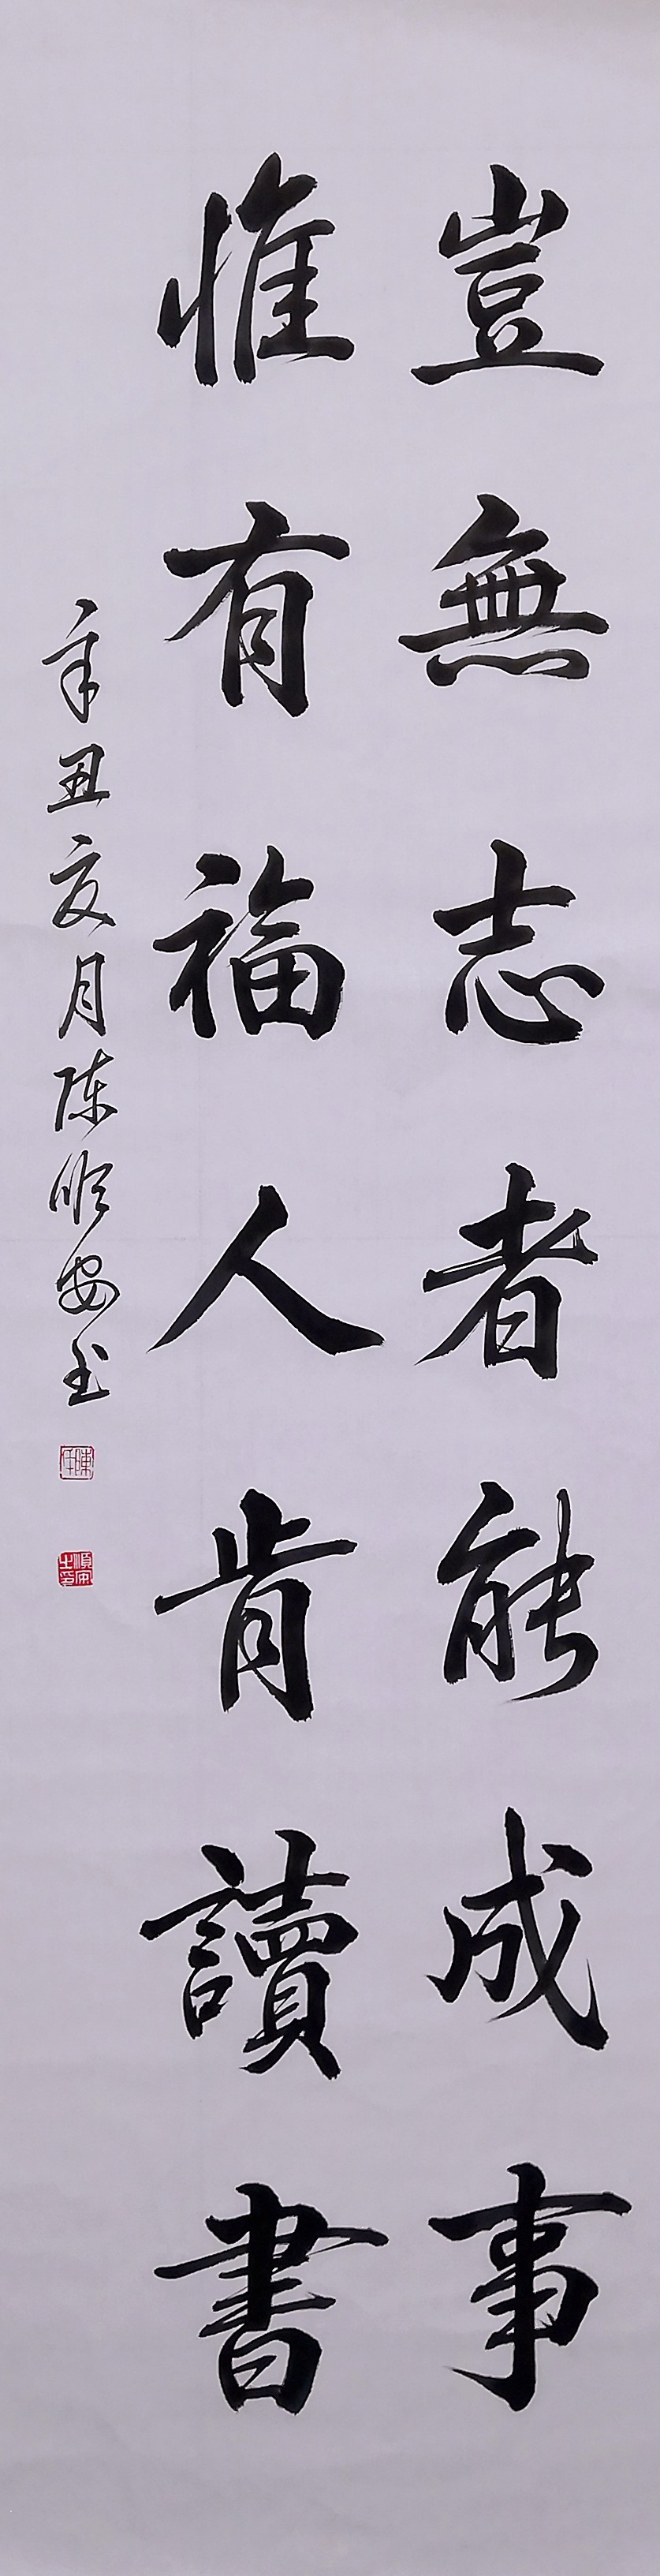 豈無志者能成事
惟有福人肯讀書
辛丑亥月陈顺安书
順安之印